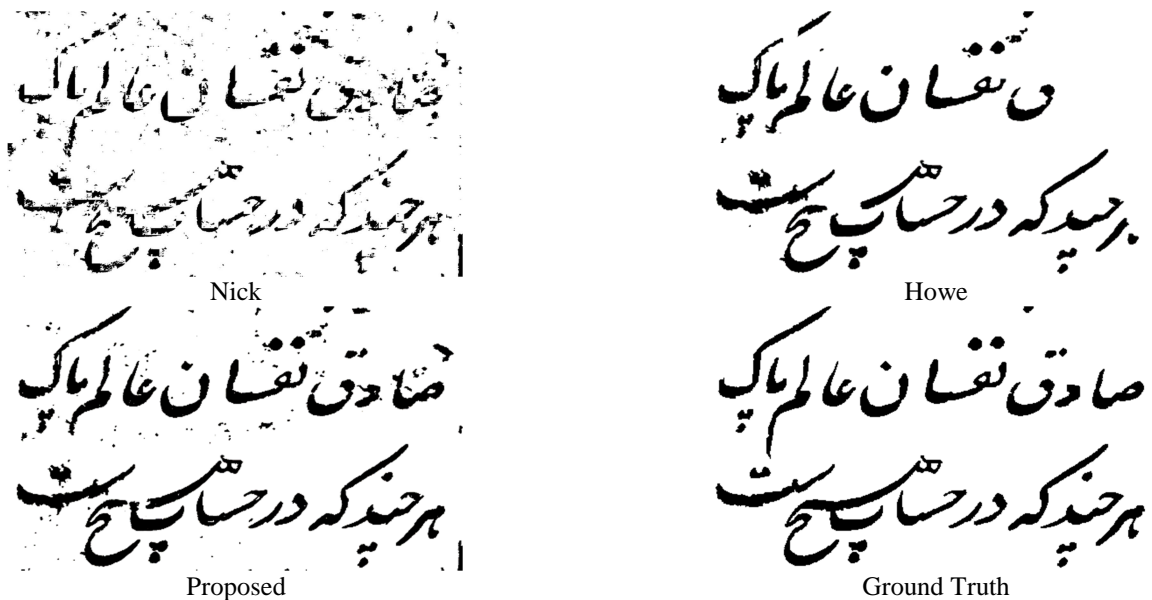 صادق نفسان عالم پاک
هر چند که در حساب هیچست
Nick
ق نفسان عالم پاک
چند که در حساب هیچست
Howe
صادق نفسان عالم پاک
هر چند که در حساب هیچست
Proposed
صادق نفسان عالم پاک
هر چند که در حساب هیچست
Ground Truth